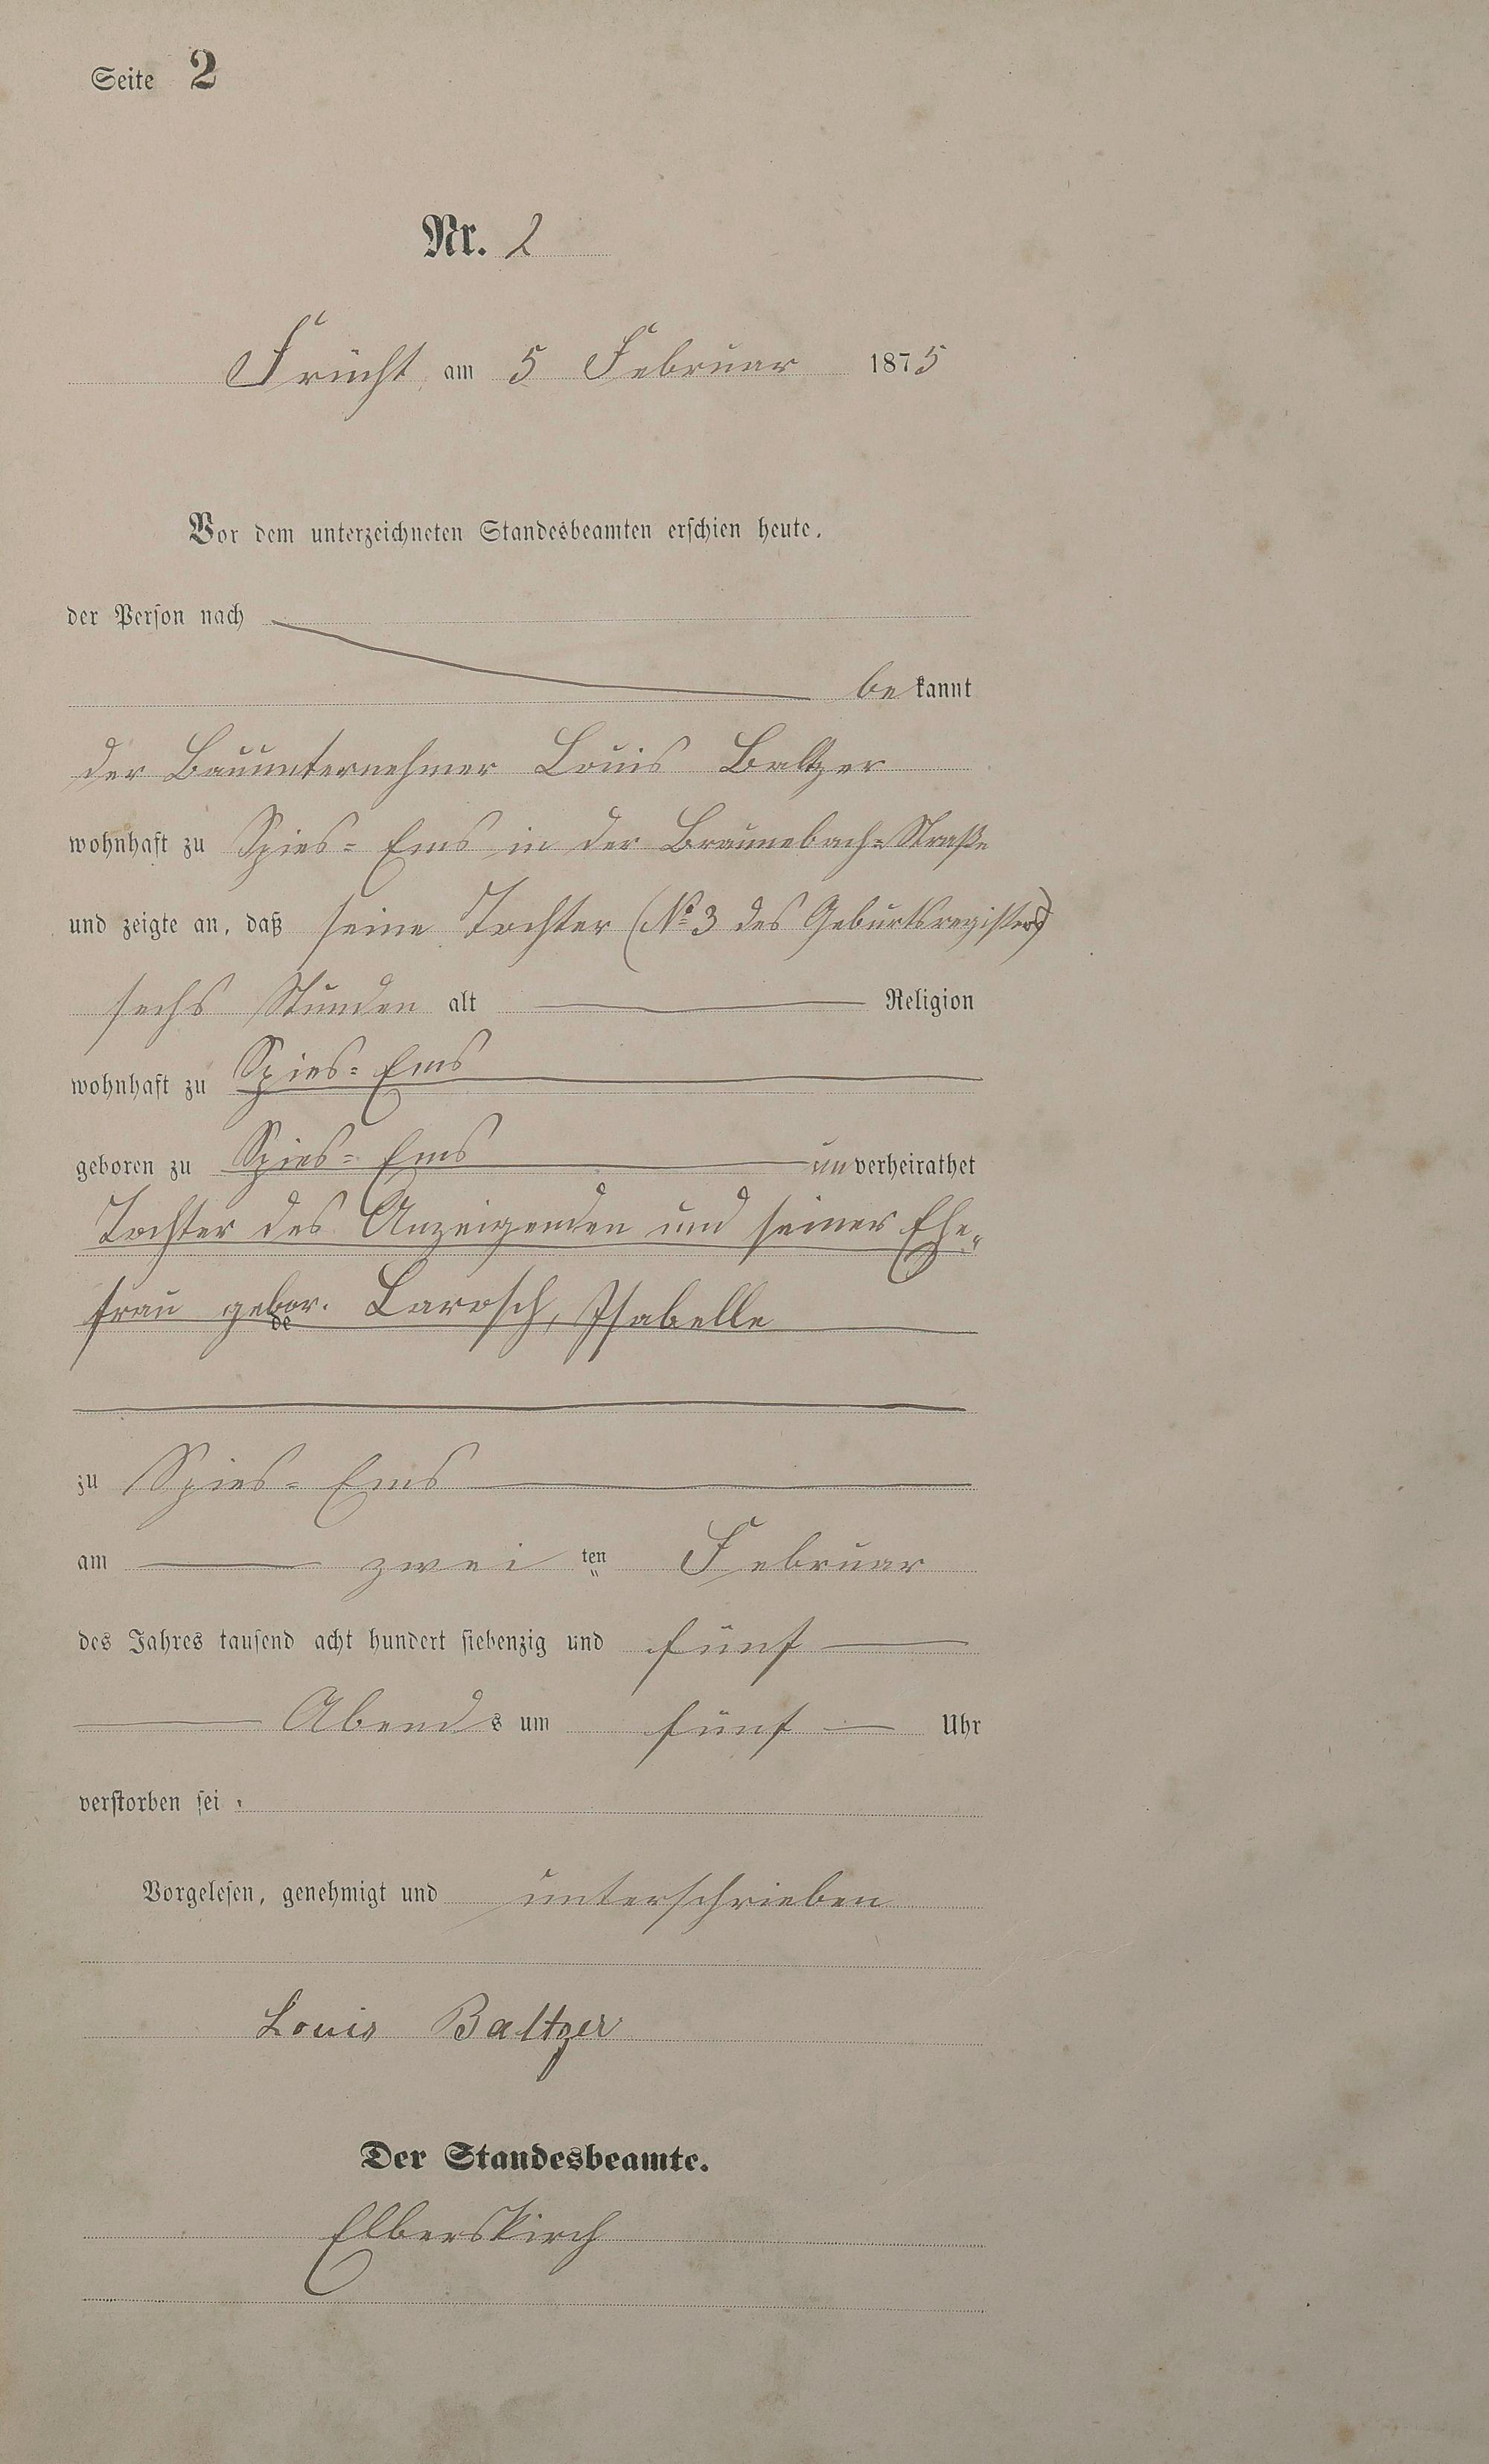 Seite 2
Nr. 2
Frücht am 5 Februar 1875
Vor dem unterzeichneten Standesbeamten erschien heute,
der Person nach
be kannt
der Bauunternehmer Louis Baltzer
wohnhaft zu Spies- Ems in der Braunebach-Straße
und zeigte an, daß seine Tochter (No 3 des Geburtsregisters)
sechs Stunden alt Religion
wohnhaft zu Spies- Ems
geboren zu Spies- Ems unverheirathet
Tochter des Anzeigenden und seiner Ehe-
frau gebor. Larosch, Isabelle
de
zu Spies- Ems
am zwei ten Februar
des Jahres tausend acht hundert siebenzig und fünf
Abends um fünf Uhr
verstorben sei.
Vorgelesen, genehmigt und unterschrieben
Louis Baltzer
Der Standesbeamte.
Elberskirch